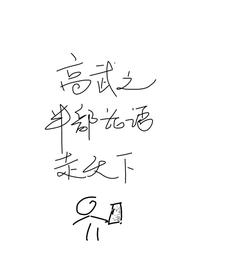 高武之
半部论语
走天下